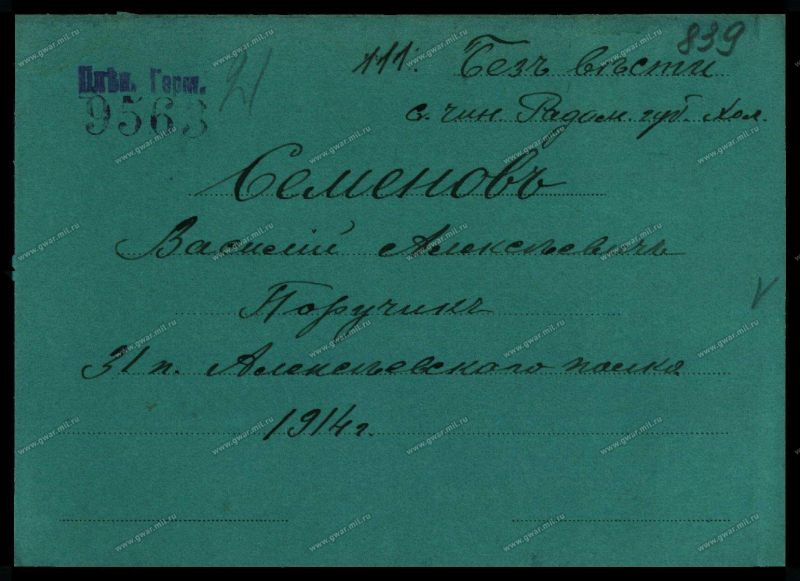 839
Плѣн. Герм.
9563
21
111. Безъ вѣсти
с. чин. Радом. губ. Хол.
Семеновъ
Василій Алексѣевичъ
Поручикъ
31 п. Алексѣевскаго полка
1914 г.
www.gwar.mil.ru